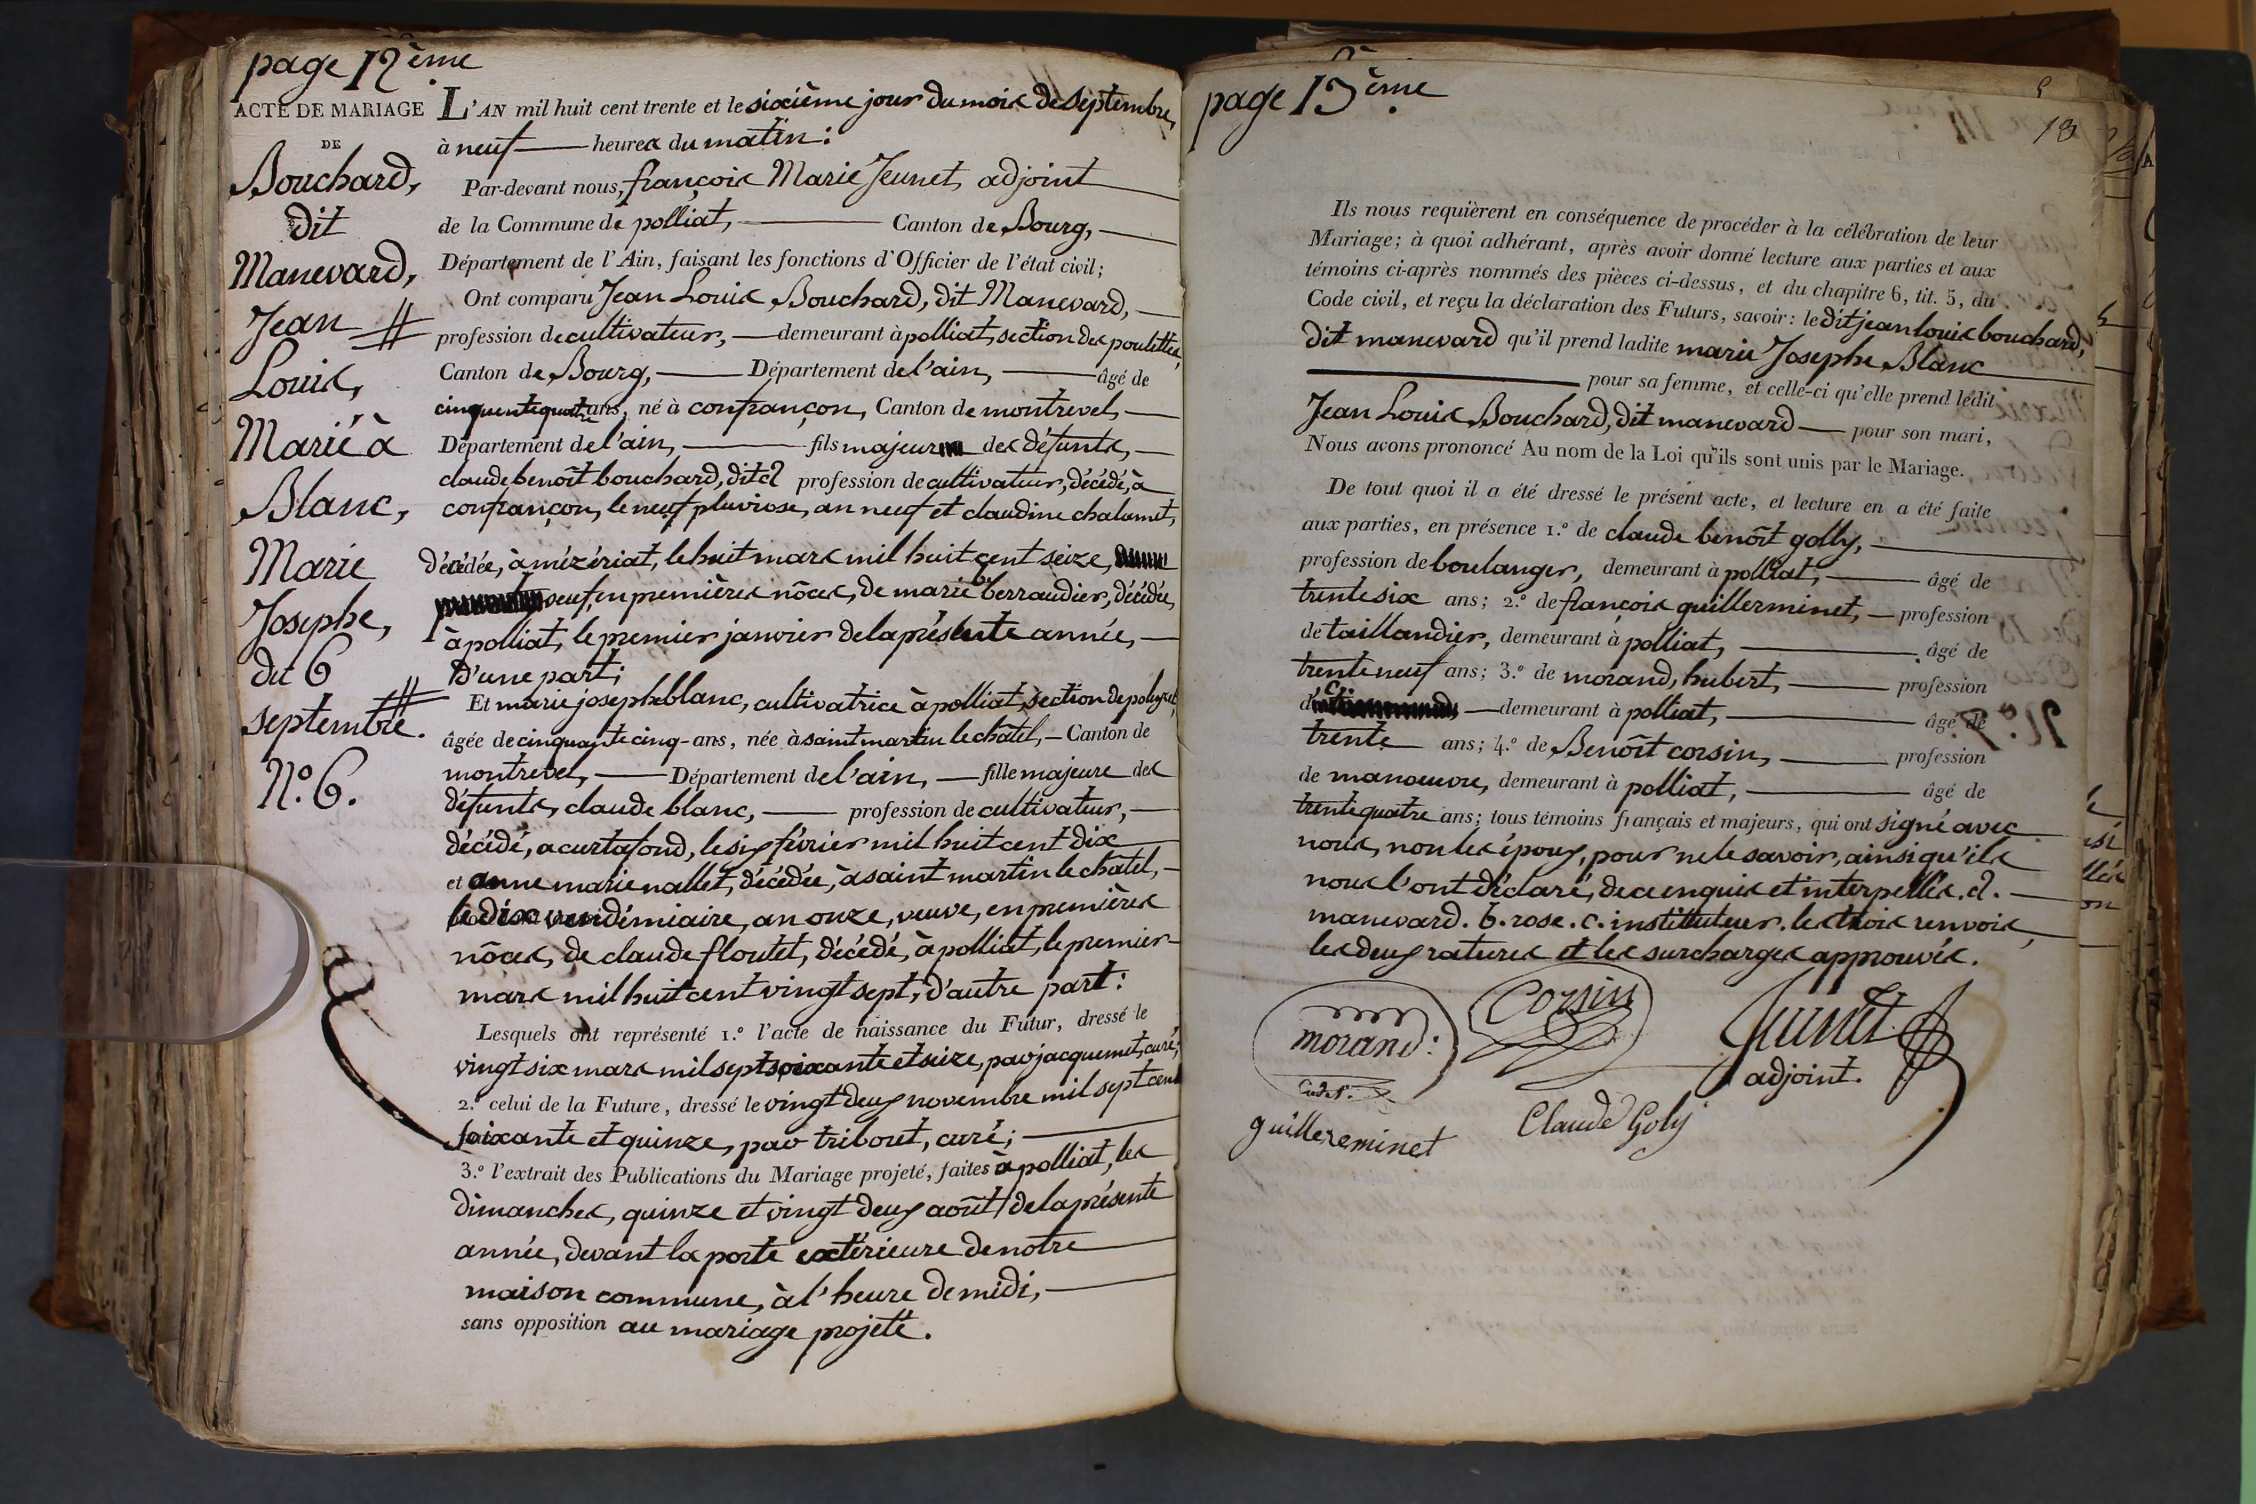 page 12ème
ACTE DE MARIAGE
DE
Bouchard,
dit
Manevard,
Jean
Louis,
Marié à
Blanc,
Marie
Josephe,
du 6
septembre.
N.º 6.
L'AN mil huit cent trente et le sixième jour du mois de septembre,
à neuf heures du matin:
Par-devant nous, françois Marie Jeunet, adjoint
de la Commune de polliat, Canton de Bourg,
Département de l'Ain, faisant les fonctions d'Officier de l'état civil;
Ont comparu Jean Louis Bouchard, dit Manevard,
profession de cultivateur, demeurant à polliat, section des poulettes,
Canton de Bourg, Département de l'ain, âgé de
cinquante quatre ans, né à confrançon, Canton de montrevel,
Département de l'ain, fils majeur des défunts,
claude benoît bouchard, dit a profession de cultivateur, décédé, à
confrançon, le neuf pluviose, an neuf et claudine chalamet,
décédée, à mézériat, le huit mars mil huit cent seize,
veuf, en premières nôces, de marie b berraudier, décédée,
à polliat, le premier janvier de la présente année,
D'une part;
Et marie josephe blanc, cultivatrice à polliat, section de
âgée de cinquante cinq ans, née à saint martin le châtel, Canton de
montrevel, Département de l'ain, fille majeure des
défunts, claude blanc, profession de cultivateur,
décédé, a curtafond, le six février mil huit cent dix
et anne marie nallet, décédée, à saint martin le châtel,
le dix vendémiaire, an onze, veuve, en premières
nôces, de claude floutet, décédé, à polliat, le premier
mars mil huit cent vingt sept, d'autre part:
Lesquels ont représenté 1.º l'acte de naissance du Futur, dressé le
vingt six mars mil sept soixante et seize, par jacquemet, curé;
2.º celui de la Future, dressé le vingt deux novembre mil sept cent
soixante et quinze, par triboret, curé;
3.º l'extrait des Publications du Mariage projeté, faites à polliat, les
dimanches, quinze et vingt deux août de la présente
année, devant la porte extérieure de notre
maison commune, à l'heure de midi,
sans opposition au mariage projeté.
page 13ème
13
Ils nous requièrent en conséquence de procéder à la célébration de leur
Mariage; à quoi adhérant, après avoir donné lecture aux parties et aux
témoins ci-après nommés des pièces ci-dessus, et du chapitre 6, tit. 5, du
Code civil, et reçu la déclaration des Futurs, savoir: le dit jean louis bouchard,
dit manevard qu'il prend ladite marie Josephe Blanc
pour sa femme, et celle-ci qu'elle prend ledit
Jean Louis Bouchard, dit manevard pour son mari,
Nous avons prononcé Au nom de la Loi qu'ils sont unis par le Mariage.
De tout quoi il a été dressé le présent acte, et lecture en a été faite
aux parties, en présence 1.º de claude benoît golly,
profession de boulanger, demeurant à polliat, âgé de
trente six ans; 2.º de françois guillerminet, profession
de taillandier, demeurant à polliat, âgé de
trente neuf ans; 3.º de morand, hubert, profession
d c demeurant à polliat, âgé de
trente ans; 4.º de Benoît corsin, profession
de manoeuvre, demeurant à polliat, âgé de
trente quatre ans; tous témoins français et majeurs, qui ont signé avec
nous, non les époux, pour ne le savoir, ainsi qu'ils
nous l'ont déclaré, de ce enquis et interpellés. a.
manevard. b. rose. c. instituteur. les trois renvois,
les deux ratures et les surcharges approuvés.
morand:
Corsin
Jeunet
adjoint.
guillereminet
Claude Goly